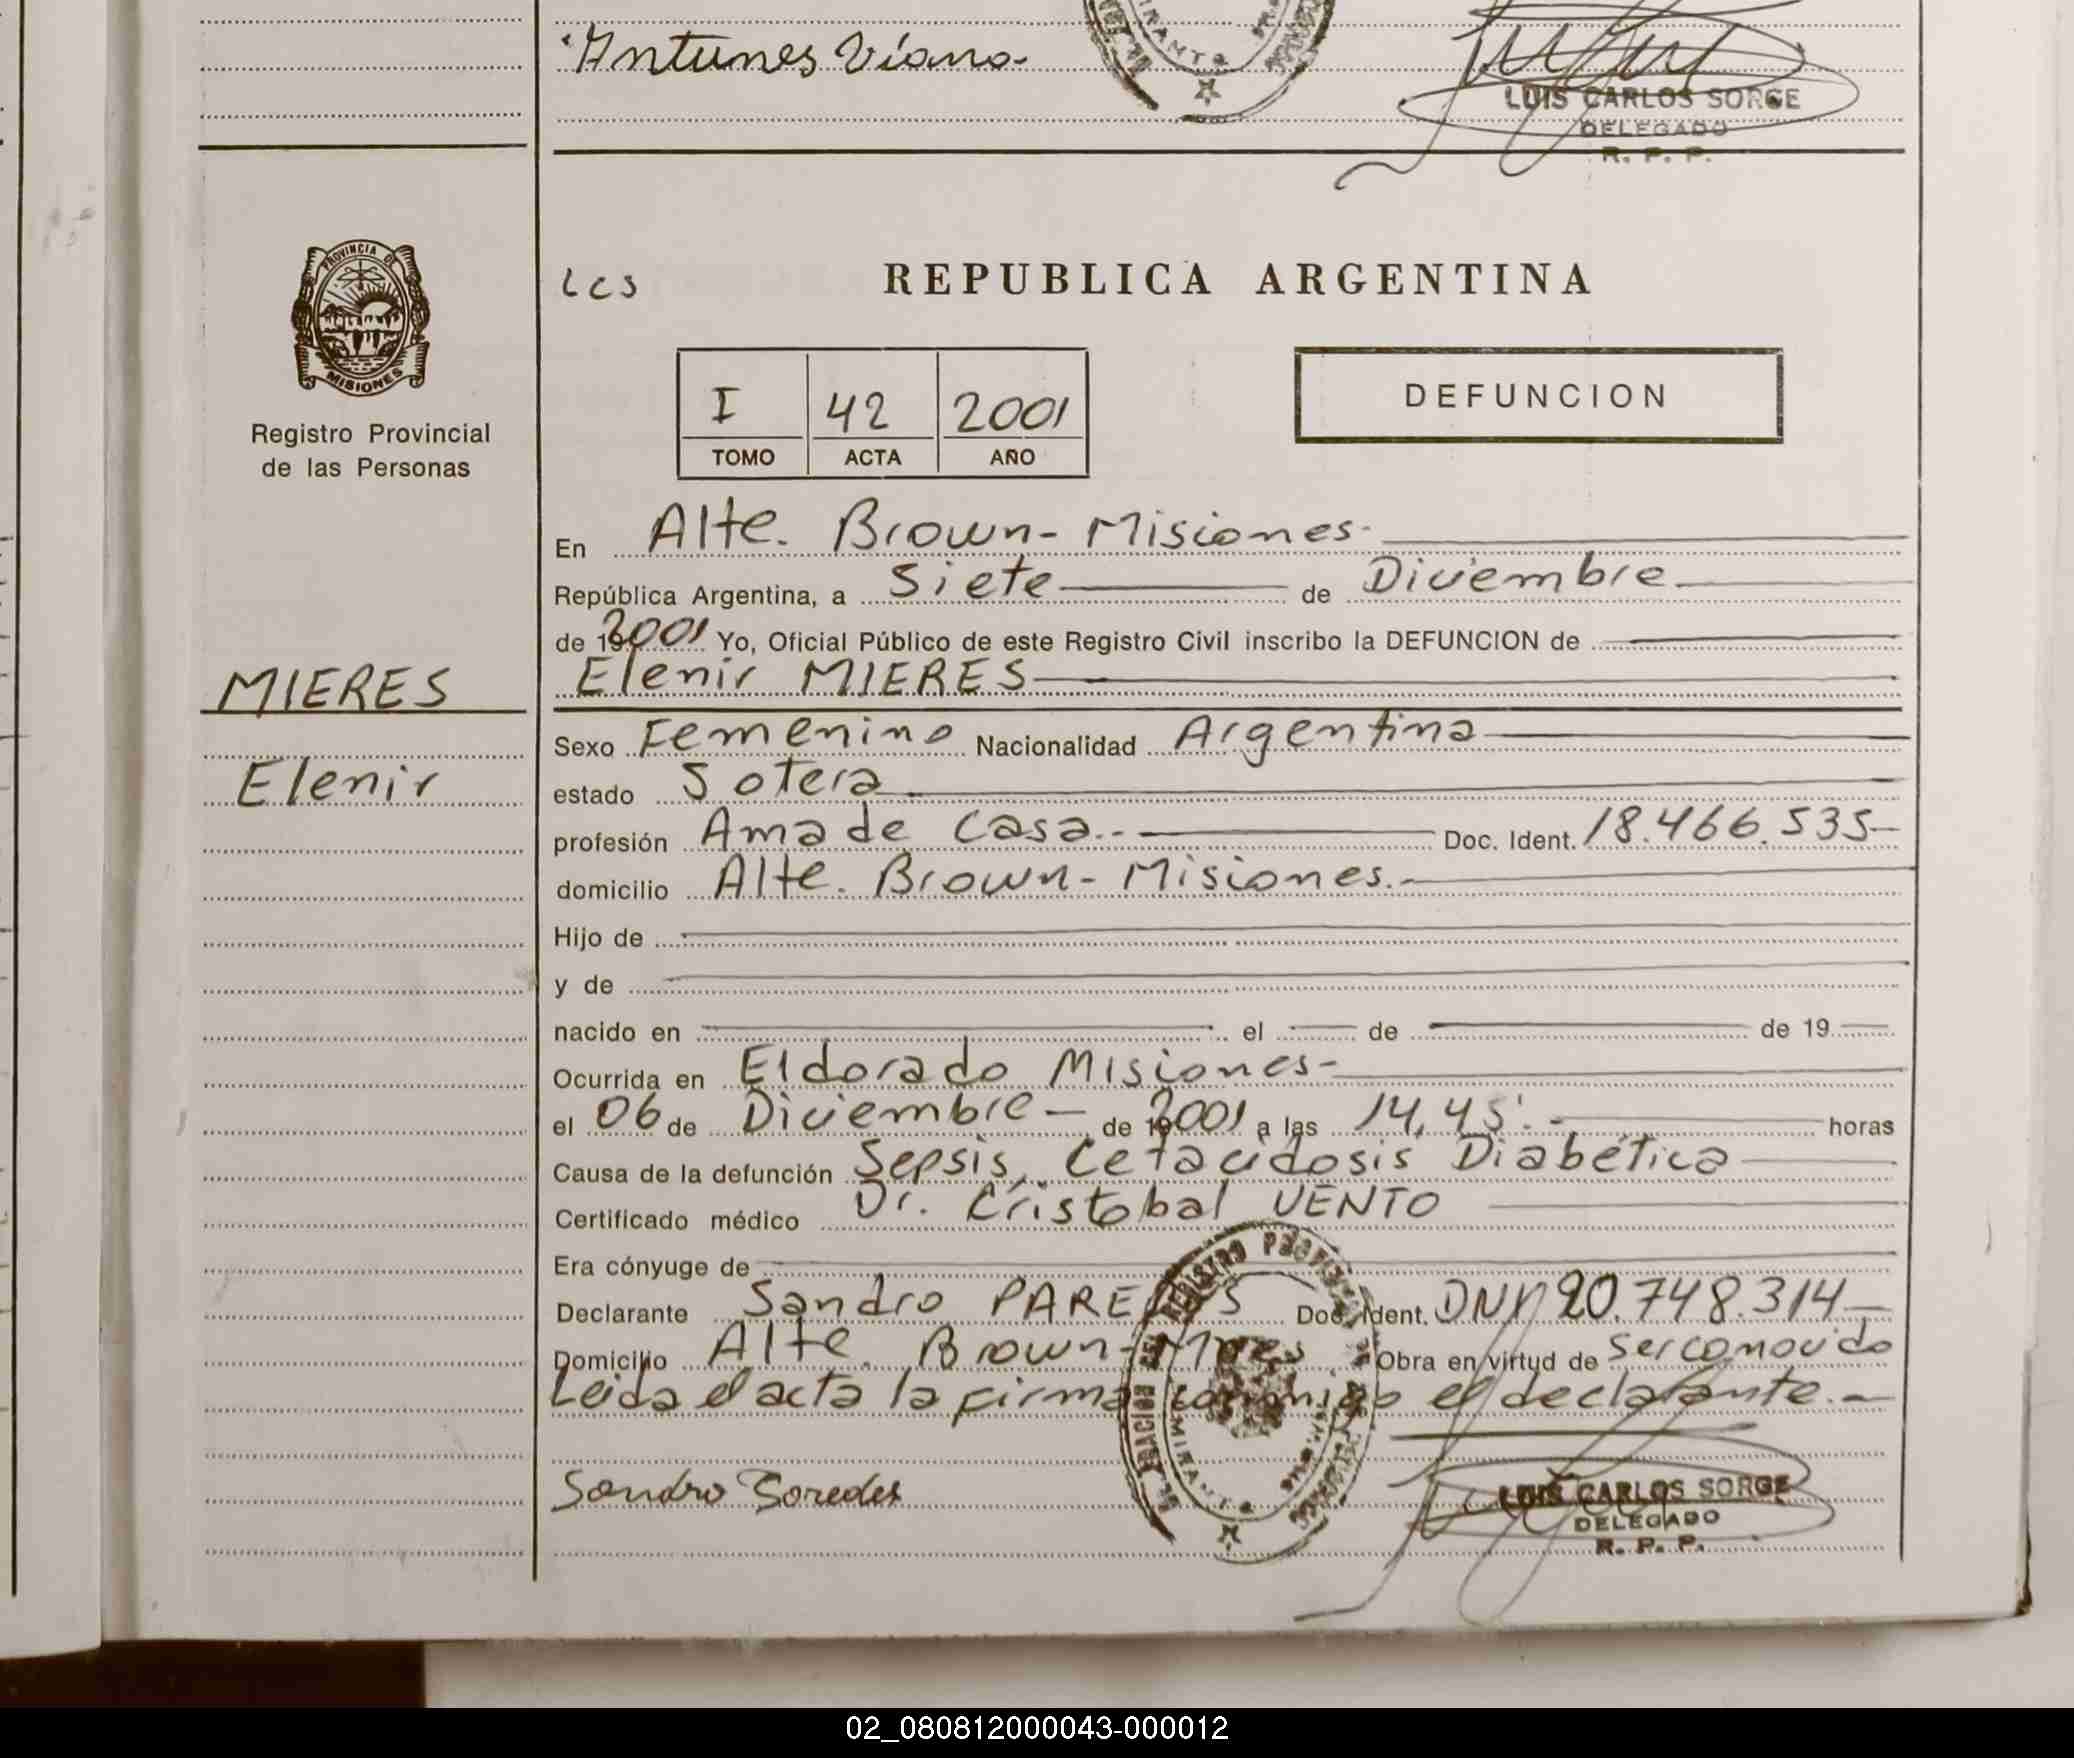 Antunes Viana
LUIS CARLOS SORGE
DELEGADO
R. P. P.
PROVINCIA DE
MISIONES
Registro Provincial
de las Personas
LCS
REPUBLICA ARGENTINA
I 42 2001
TOMO ACTA AÑO
DEFUNCION
En Alte. Brown- Misiones-
República Argentina, a Siete de Diciembre
de 19 2001 Yo, Oficial Público de este Registro Civil inscribo la DEFUNCION de
Elenir MIERES
MIERES
Elenir
Sexo Femenino Nacionalidad Argentina
estado Sotera
profesión Ama de Casa.- Doc. Ident. 18.466.535-
domicilio Alte. Brown- Misiones.-
Hijo de
y de
nacido en el de de 19
Ocurrida en Eldorado Misiones-
el 06 de Diciembre- de 2001 a las 14,45'.- horas
Causa de la defunción Sepsis, Cetacidosis Diabética
Certificado médico Dr. Cristobal VENTO
Era cónyuge de
Declarante Sandro PAREDES Doc. Ident. DNI 20.748.314-
Domicilio Alte. Brown- Mnes Obra en virtud de ser conocido
Leida el acta la firma conmigo el declarante.-
Sandro Paredes
LUIS CARLOS SORGE
DELEGADO
R. P. P.
02_080812000043-000012